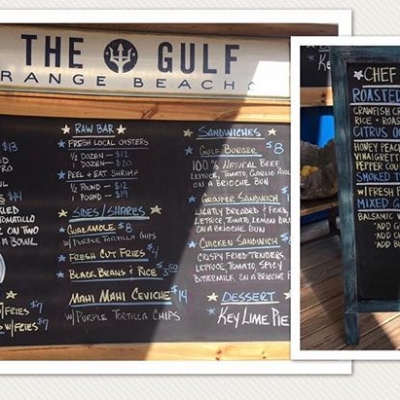 THE GULF
RANGE BEACH
$13
$14
TOMATILLO
ON TWO
N BOWL
FRIES $7
W/FRIES $7
RAW BAR
FRESH LOCAL OYSTERS
1/2 DOZEN - $12
1 DOZEN - $20
PEEL + EAT SHRIMP
1/2 POUND - $12
1 POUND - $19
SIDES/SHARES
GUACAMOLE $8
W/ PURPLE TORTILLA CHIPS
FRESH CUT FRIES $4
BLACK BEANS & RICE $3.50
MAHI MAHI CEVICHE $14
W/ PURPLE TORTILLA CHIPS
SANDWICHES
GULF BURGER $8
100% NATURAL BEEF
LETTUCE, TOMATO, GARLIC AIOLI
ON A BRIOCHE BUN
GROUPER SANDWICH
LIGHTLY BREADED & FRIED,
LETTUCE, TOMATO, LEMON
ON A BRIOCHE BUN
CHICKEN SANDWICH
CRISPY FRIED TENDERS,
LETTUCE, TOMATO, SPICY
BUTTERMILK ON A BRIOCHE
DESSERT
KEY LIME PIE
KE
CHEF
ROASTED
CRAWFISH
RICE + ROAS
CITRUS
HONEY PEACH
VINAIGRETT
PEPPER COU
SMOKED T
W/ FRESH
MIXED G
BALSAMIC
ADD
ADD
ADD